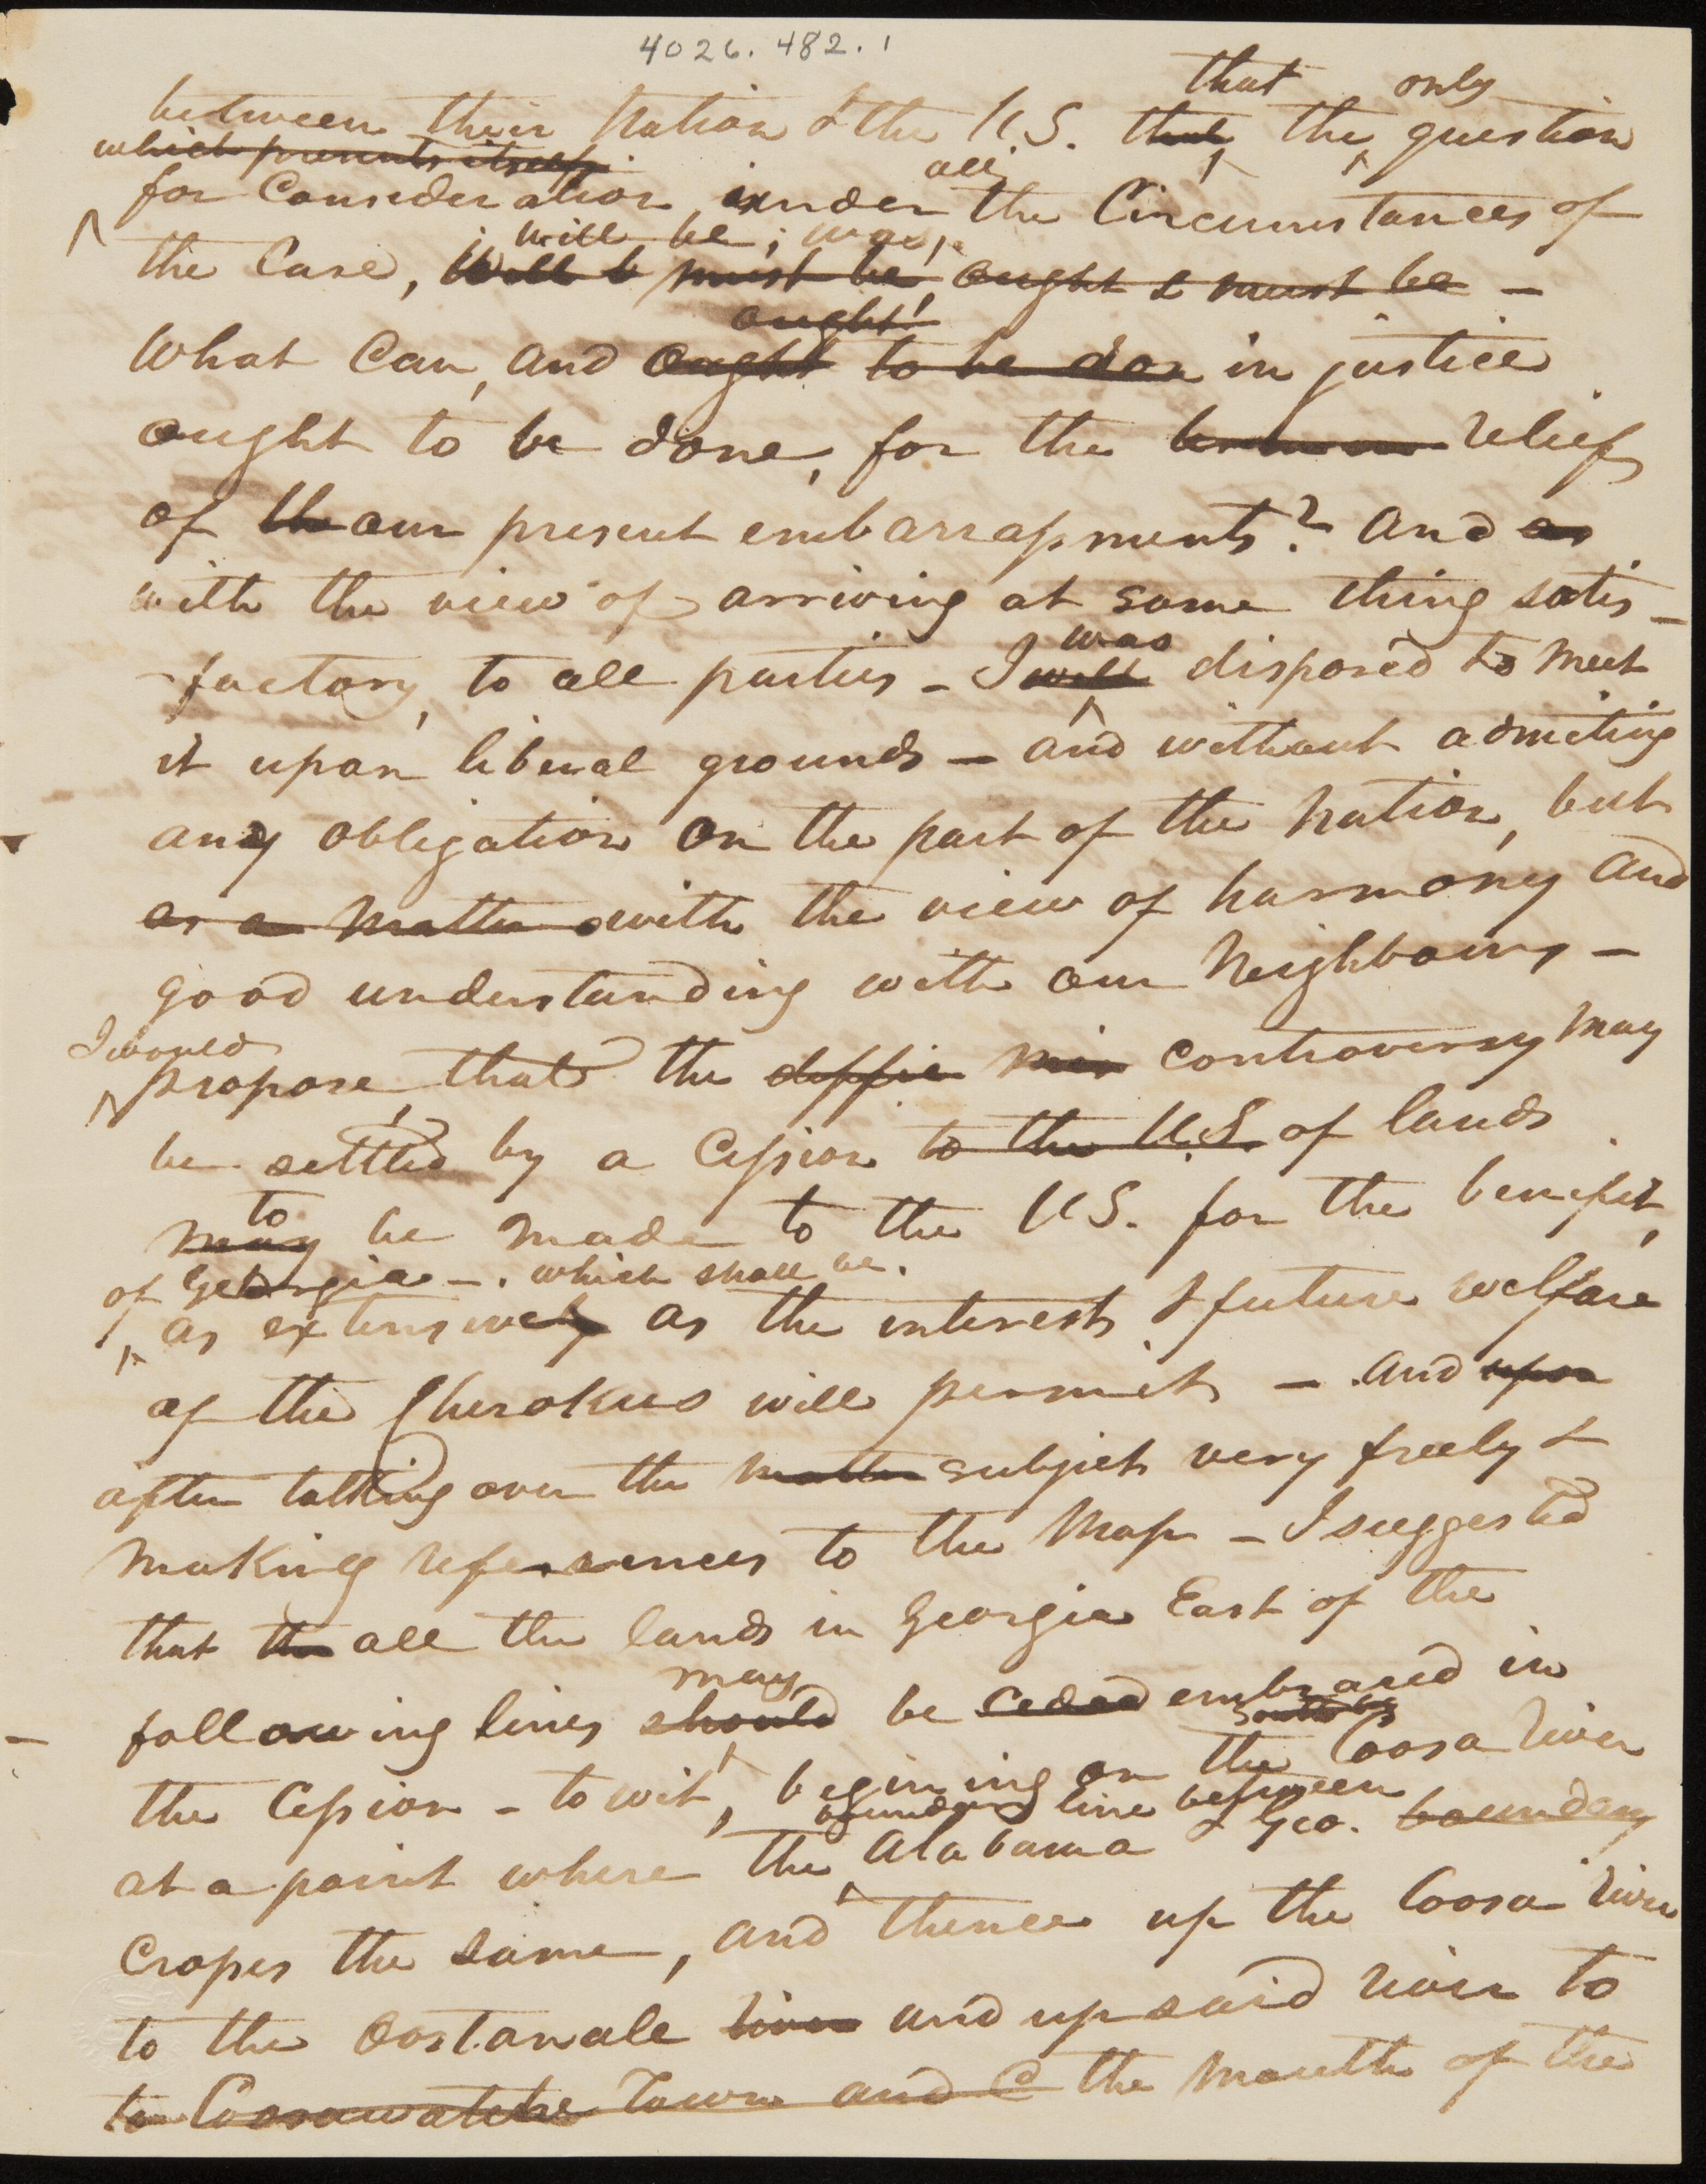 4026.482.1
that only
between their Nation & the U.S. that the question
which presents itself
for Consideration, under all the Circumstances of
will be; was,
the Case, will b must be, ought & must be —
ought
What Can, and ought to be don in justice
ought to be done, for the relief
of th our present embarrassments? and as
with the view of arriving at some thing satis-
was
factory, to all parties - I will disposed to meet
it upon liberal grounds — and without admiting
any obligation on the part of the Nation, but
as a matter with the view of harmony and
good understanding with our Neighbours —
I would
propose, that the diffic controversy may
be settled by a Cession to the U.S. of lands
to
may be made to the U.S. for the benefit,
of Georgia -. which shall be.
as extensively as the interests & future welfare
of the Cherokees will permit — and upon
after talking over the matter subject very freely &
making references to the Map — I suggested
that the all the lands in Georgia East of the
may
following lines should be ceded embraced in
the Cession - to wit, begining on the Coosa river
boundary line between
at a point where the Alabama & Geo. boundary
Crosses the same, and thence up the Coosa river
to the Oostanale river and up said river to
to Coosawatche Town and C the mouth of the